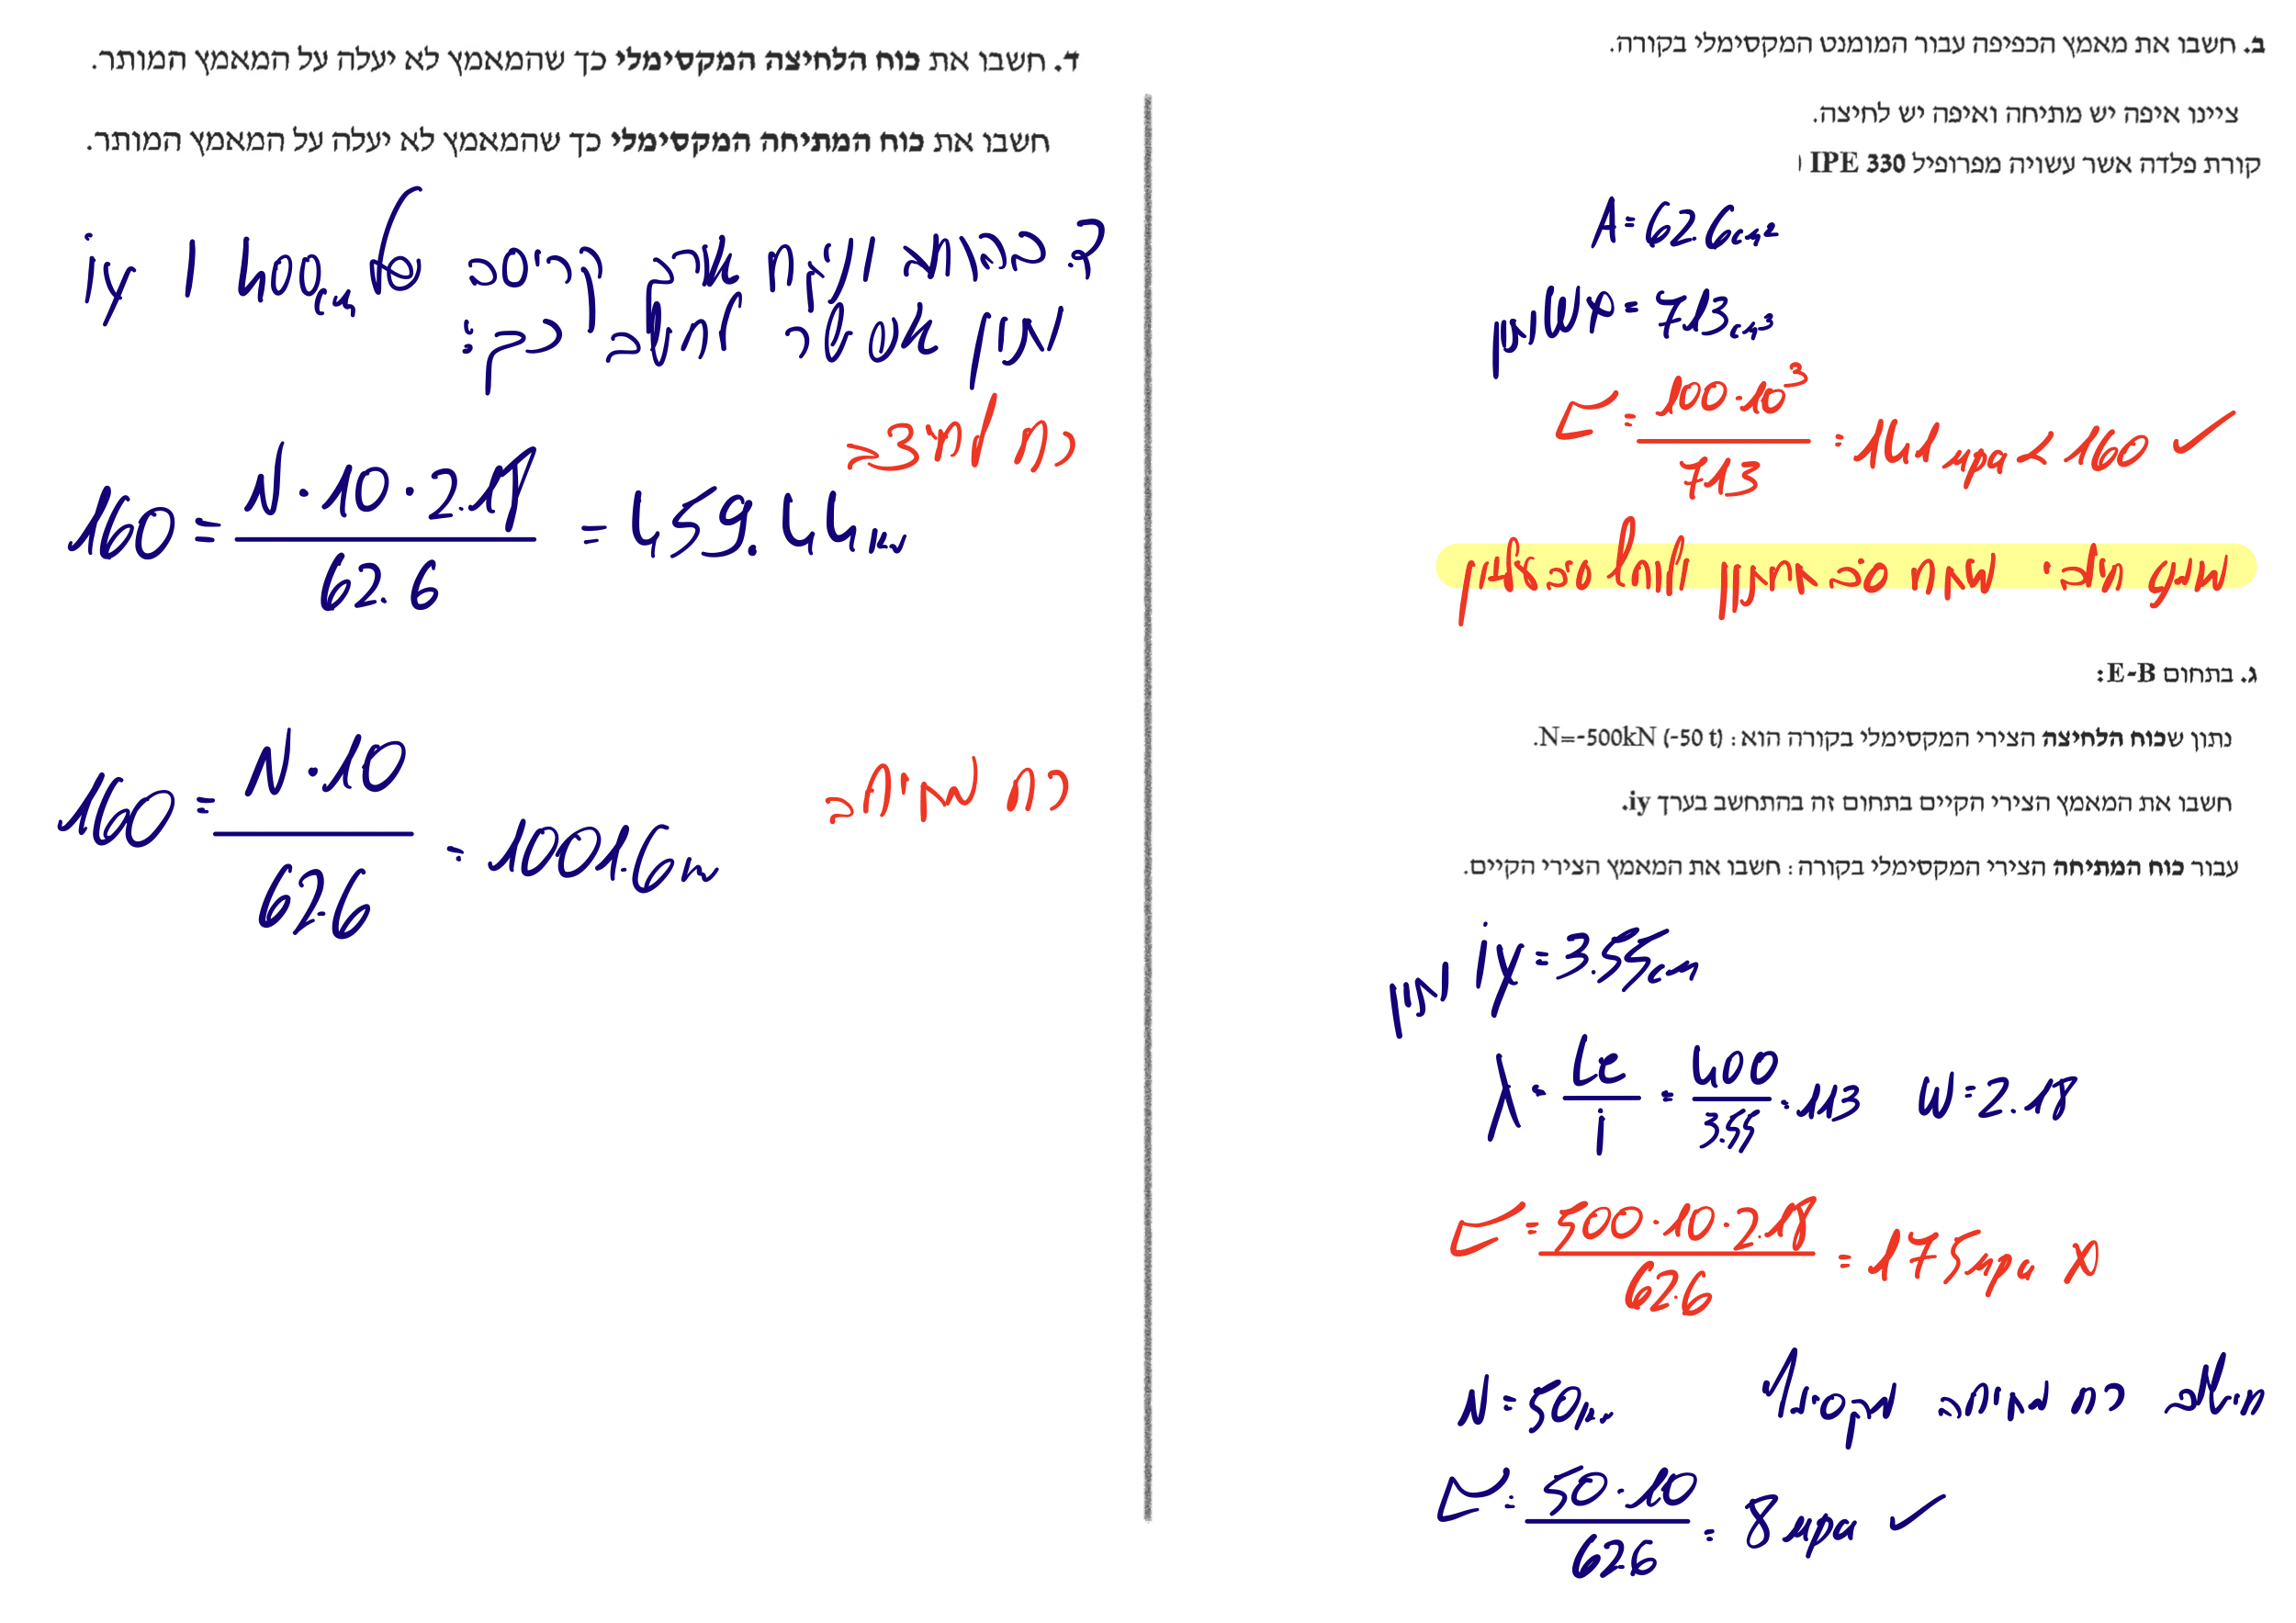 ב. חשבו את מאמץ הכפיפה עבור המומנט המקסימלי בקורה.
ציינו איפה יש מתיחה ואיפה יש לחיצה.
קורת פלדה אשר עשויה מפרופיל IPE 330
A=62.6cm²
נתון Wx=713cm³
σ=100·10³/713=141mpa<160 ✓
מומנט חיובי מתח סיב תחתון ולוחץ סיב עליון
ג. בתחום E-B:
נתון שכוח הלחיצה הצירי המקסימלי בקורה הוא: N=-500kN (-50 t).
חשבו את המאמץ הצירי הקיים בתחום זה בהתחשב בערך iy.
עבור כוח המתיחה הצירי המקסימלי בקורה: חשבו את המאמץ הצירי הקיים.
נתון iy=3.55cm
λ=Le/i=400/3.55=113 W=2.18
σ=500·10·2.18/62.6=175mpa X
חישוב כח מתיחה מקסימלי N=50kN
σ=50·10/626=8mpa ✓
ד. חשבו את כוח הלחיצה המקסימלי כך שהמאמץ לא יעלה על המאמץ המותר.
חשבו את כוח המתיחה המקסימלי כך שהמאמץ לא יעלה על המאמץ המותר.
ד. בהנחה וניקח אורך קריסה של 400cm ו iy
נתון אפשר לחשב כך:
כח לחיצה
160=N·10·2.18/62.6=459.44kN
כח מתיחה
160=N·10/62.6=1001.6kN